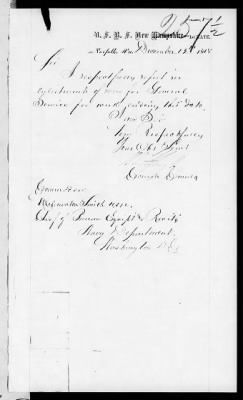 25 7 1/2
U.S.R.S. New Hampshire
Norfolk Va. December 12th 1868
Sir
I respectfully report no
enlistments of men for General
Service for week ending this date.
I am Sir
Very Respectfully
Your Obt Servt
Commodore
Melancton Smith U.S.N.
Chief of Bureau Equipt & Recruits
Navy Department
Washington D.C.